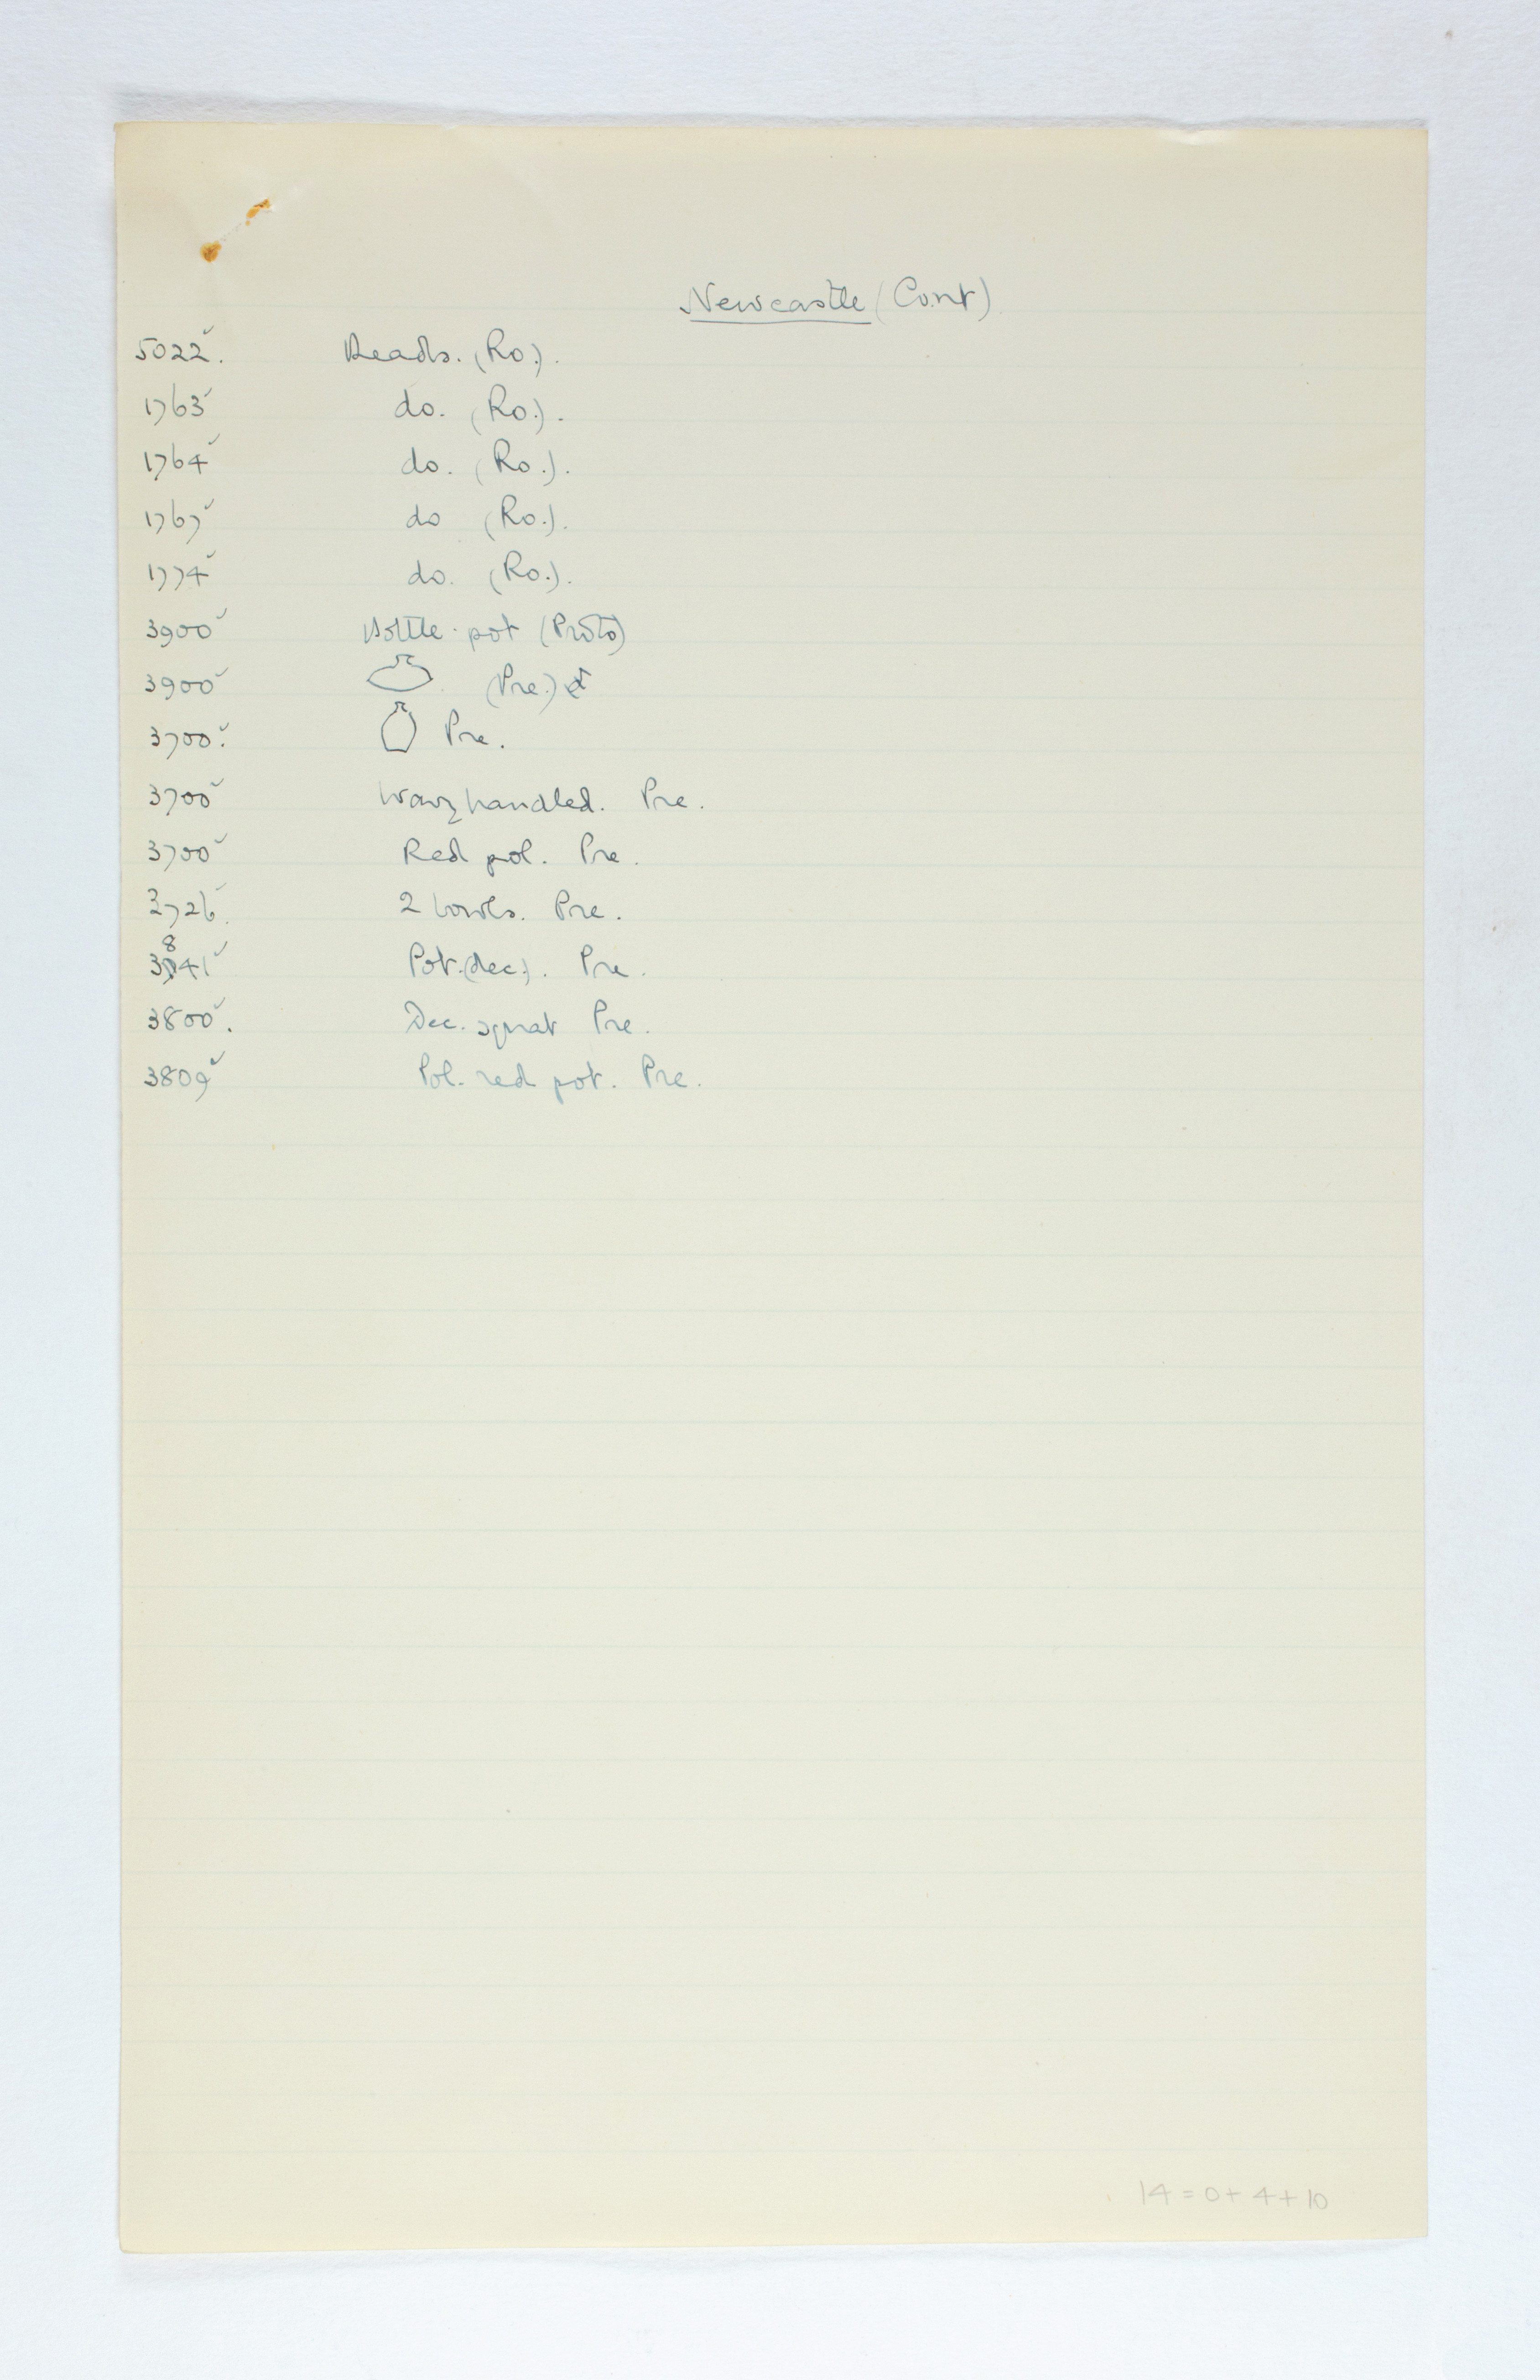 Newcastle (Cont)
5022. Beads. (Ro.).
1763 do. (Ro.).
1764 do. (Ro.).
1767 do (Ro.).
1774 do. (Ro.).
3900 Bottle-pot (Proto)
3900 (Pre.)
3700. Pre.
3700 Wavy handled. Pre.
3700 Red pol. Pre.
3726. 2 bowls. Pre.
3841 Pot. (dec.). Pre.
3800. Dec. squat Pre.
3809 Pol. red pot. Pre.
14 = 0 + 4 + 10